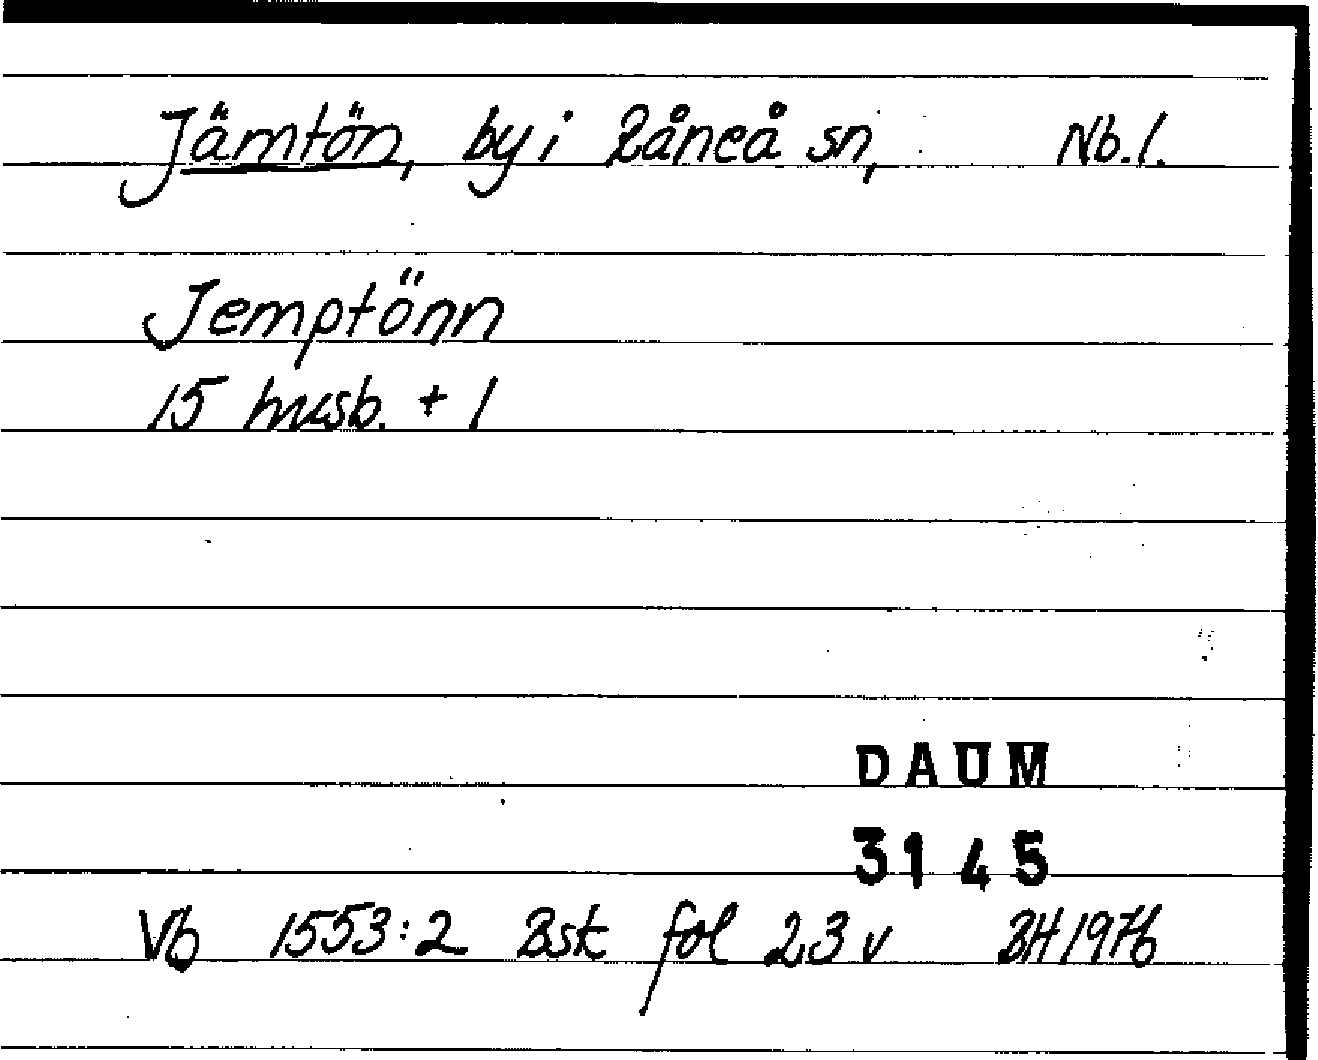 Jämtön, by i Råneå sn, Nb.l.
Jemptönn
15 husb. + 1
DAUM
3145
Vb 1553:2 Bsk fol 23 v BH 1976